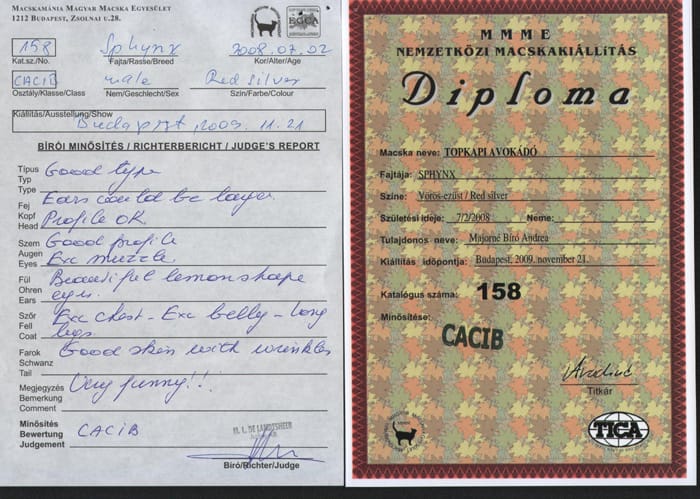 MACSKAMÁNIA MAGYAR MACSKA EGYESÜLET
1212 BUDAPEST, ZSOLNAI u.28.
158 Sphynx 2008.07.02
Kat.sz./No. Fajta/Rasse/Breed Kor/Alter/Age
CACIB male Red silver
Osztály/Klasse/Class Nem/Geschlecht/Sex Szín/Farbe/Colour
Kiállítás/Ausstellung/Show
Budapest, 2009. 11. 21
BÍRÓI MINŐSÍTÉS / RICHTERBERICHT / JUDGE'S REPORT
Típus
Typ
Type
Good type
Ears could be larger
Fej
Kopf
Head
Profile OK
Szem
Augen
Eyes
Good profile
Exc muzzle
Fül
Ohren
Ears
Beautiful lemon shape
eyes.
Szőr
Fell
Coat
Exc chest - Exc belly - Long
legs
Farok
Schwanz
Tail
Good skin with wrinkles
Megjegyzés
Bemerkung
Comment
Very funny!!
Minősítés
Bewertung
Judgement
CACIB
M. L. DE LANDSHEER
Bíró/Richter/Judge
MMME
NEMZETKÖZI MACSKAKIÁLLÍTÁS
Diploma
Macska neve: TOPKAPI AVOKÁDÓ
Fajtája: SPHYNX
Színe: Vörös-ezüst / Red silver
Születési ideje: 7/2/2008 Neme:
Tulajdonos neve: Majorné Bíró Andrea
Kiállítás időpontja: Budapest, 2009. november 21.
Katalógus száma: 158
Minősítése:
CACIB
Titkár
TICA